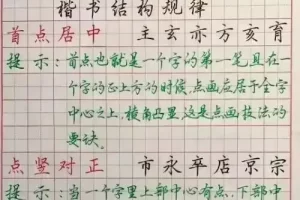 楷书结构规律
首点居中 主玄亦方亥育
提示:首点也就是一个字的第一笔且在
一个字的正上方的时候,点画应居于全字
中心之上,棱角凸显,这是点画技法的
要诀。
点竖对正 市永卒店京宗
提示:当一个字里上部中心有点,下部中